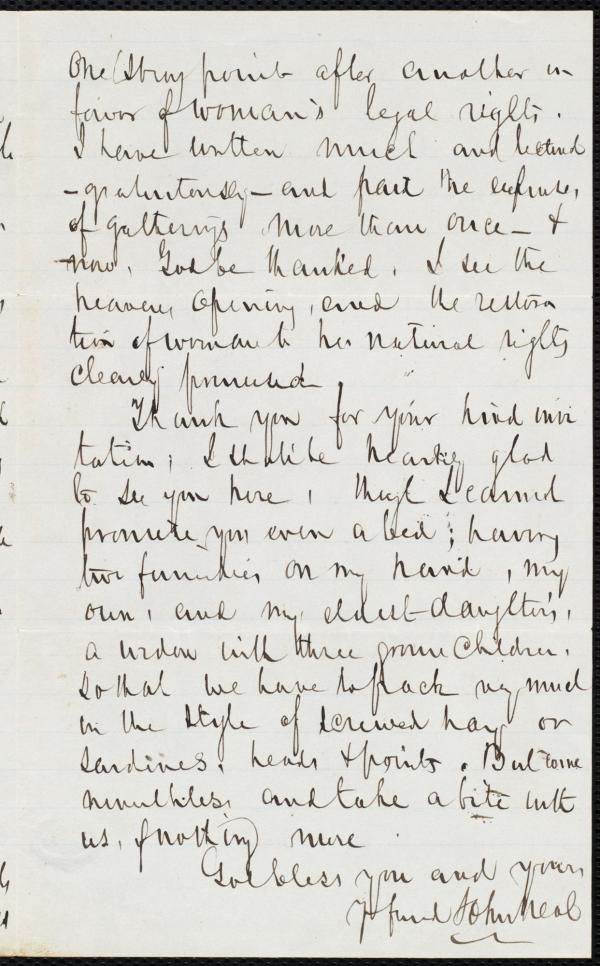 one strong point after another in
favor of woman's legal rights.
I have written much and lectured
- gratuitously - and paid the expenses,
of gatherings more than once - &
now, God be thanked, I see the
heavens opening, and the restora
tion of woman to her natural rights
clearly promised.
Thank you for your kind invi
tation; I shall be heartily glad
to see you here, though I cannot
promise you even a bed; having
two families on my hand, my
own, and my eldest daughter's,
a widow with three grown children,
so that we have to pack very much
in the style of screwed hay or
sardines, heads & points. But come
nevertheless and take a bite with
us, if nothing more.
God bless you and yours
Yr friend John Neal